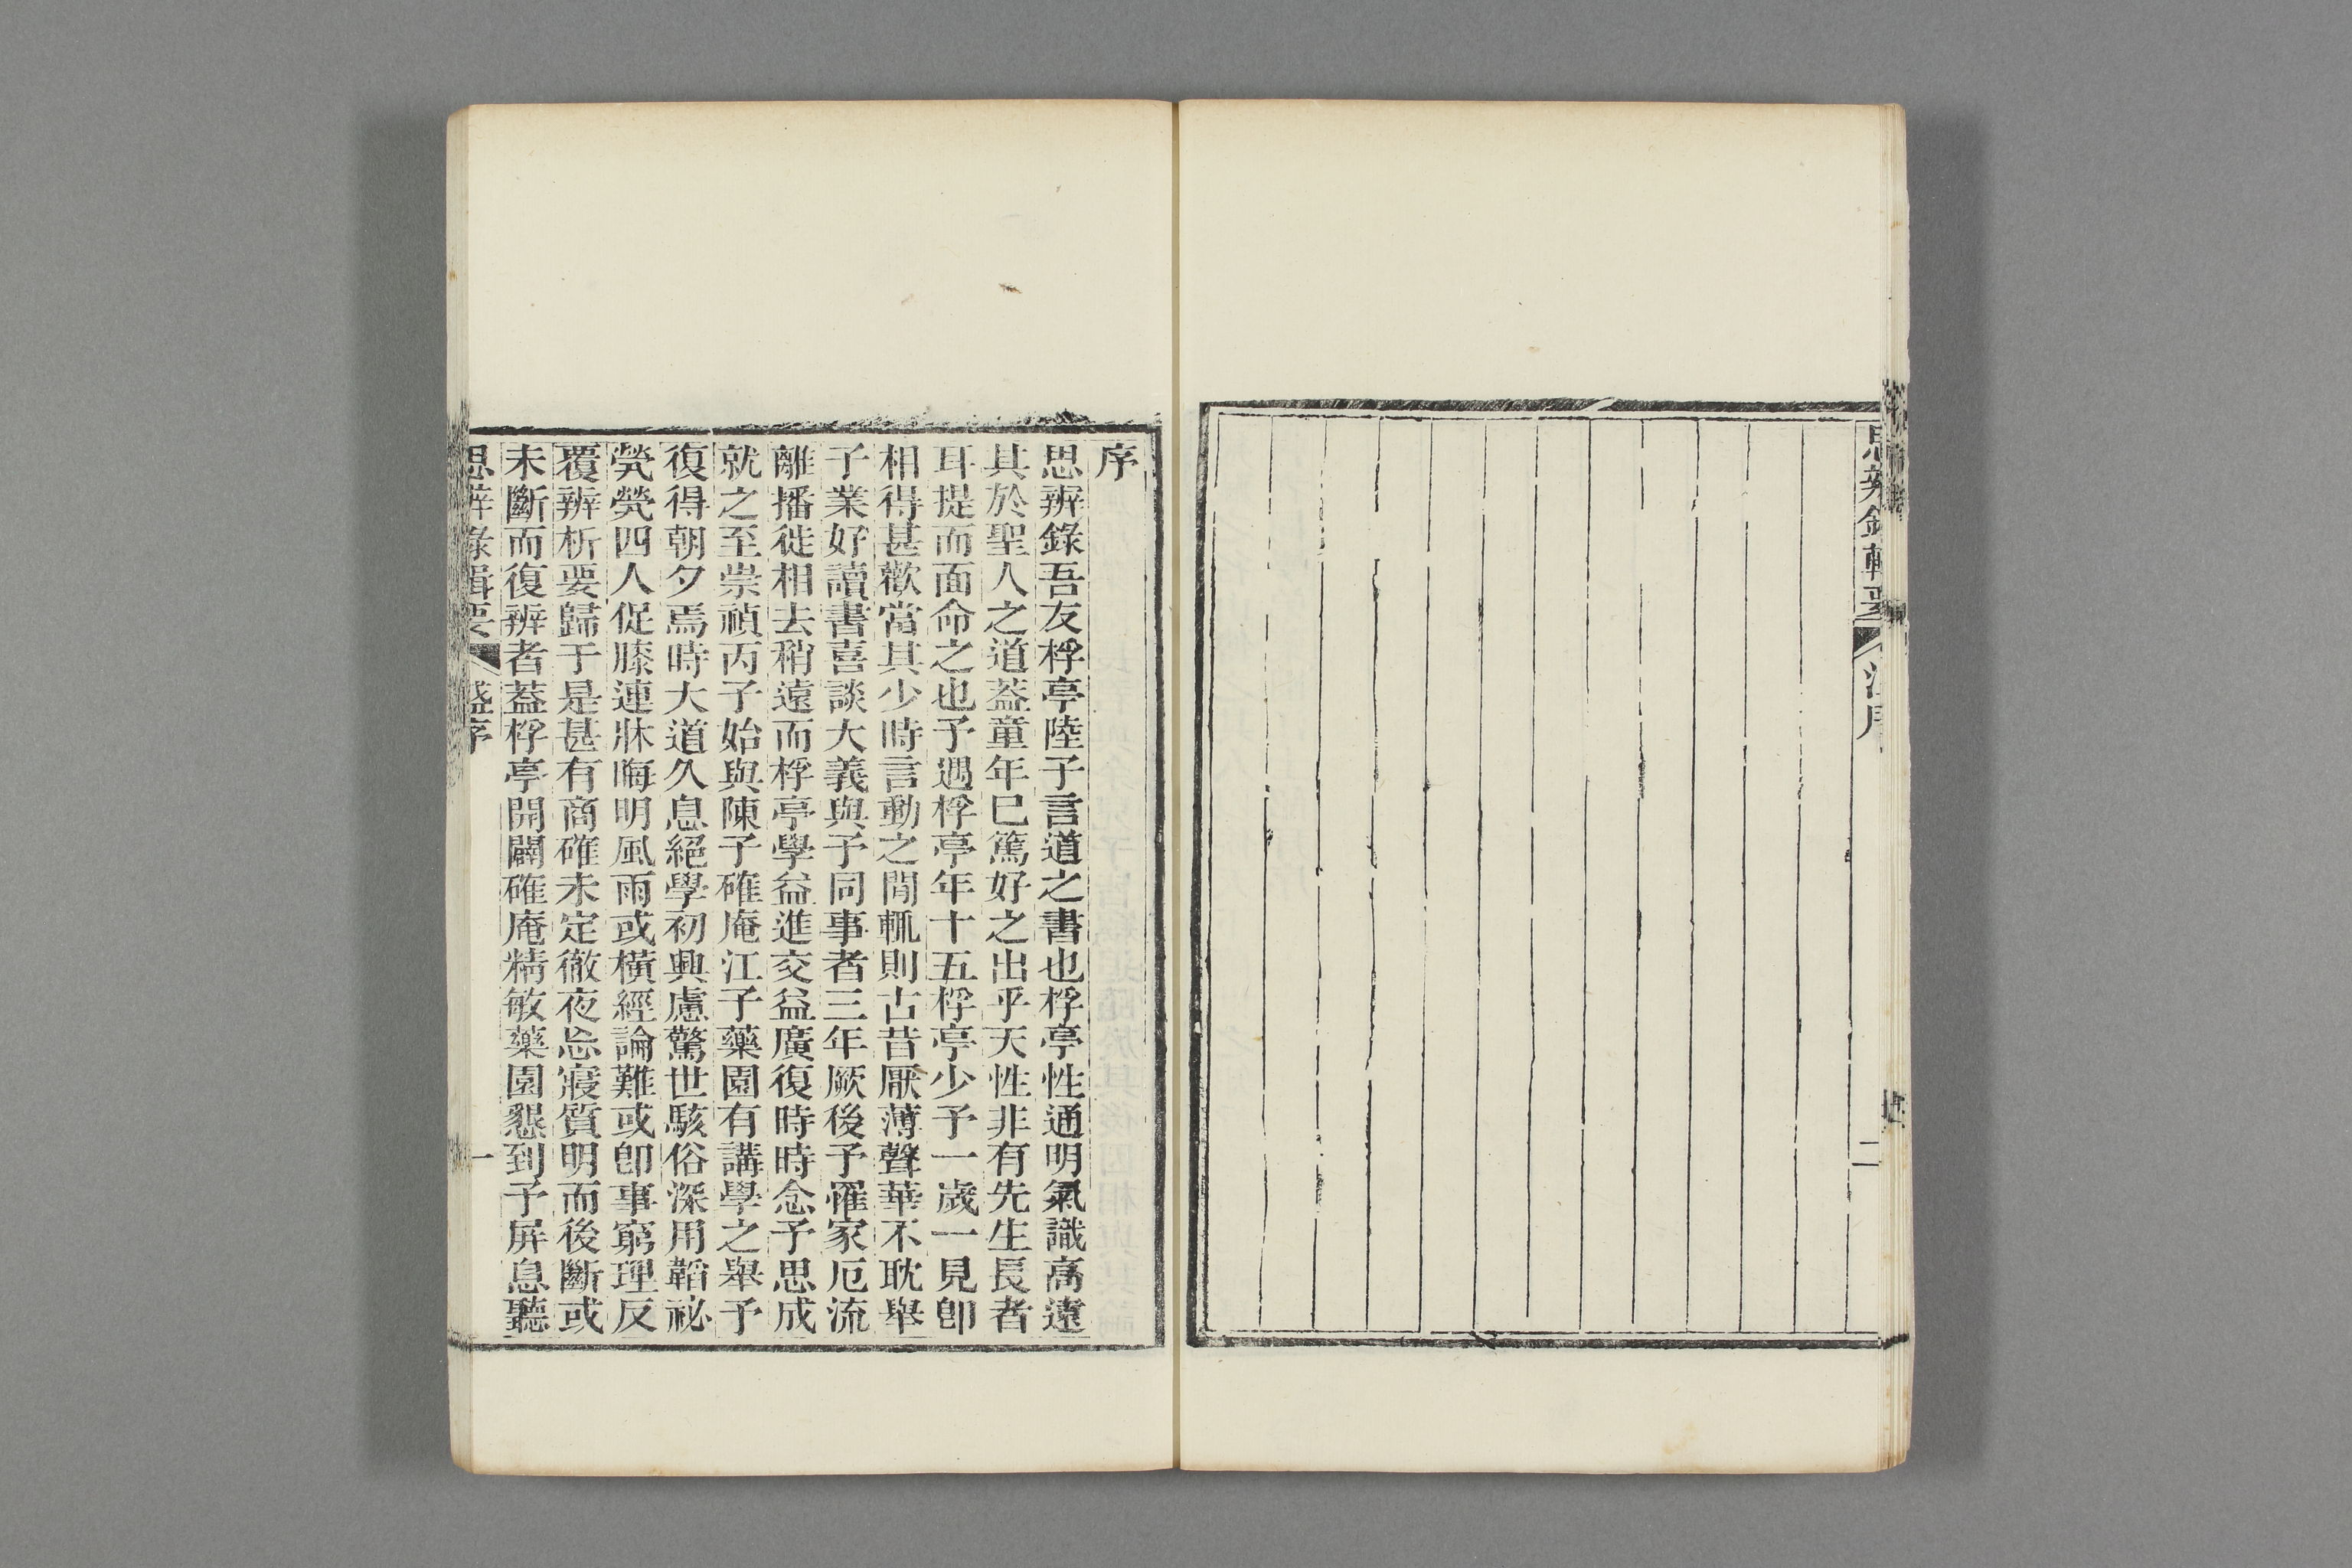 思辨錄輯要
江序
二
序
思辨錄吾友桴亭陸子言道之書也桴亭性通明氣識高遠
其於聖人之道蓋童年巳篤好之出乎天性非有先生長者
耳提而面命之也予遇桴亭年十五桴亭少予一歲一見卽
相得甚歡當其少時言動之間輒則古昔厭薄聲華不耽舉
子業好讀書喜談大義與予同事者三年厥後予罹家厄流
離播徙相去稍遠而桴亭學益進交益廣復時時念予思成
就之至崇禎丙子始與陳子確庵江子藥園有講學之舉予
復得朝夕焉時大道久息絕學初興慮驚世駭俗深用韜祕
煢煢四人促膝連牀晦明風雨或橫經論難或卽事窮理反
覆辨析要歸于是甚有商確未定徹夜忘寢質明而後斷或
未斷而復辨者蓋桴亭開闢確庵精敏藥園懇到予屏息聽
思辨錄輯要
盛序
一